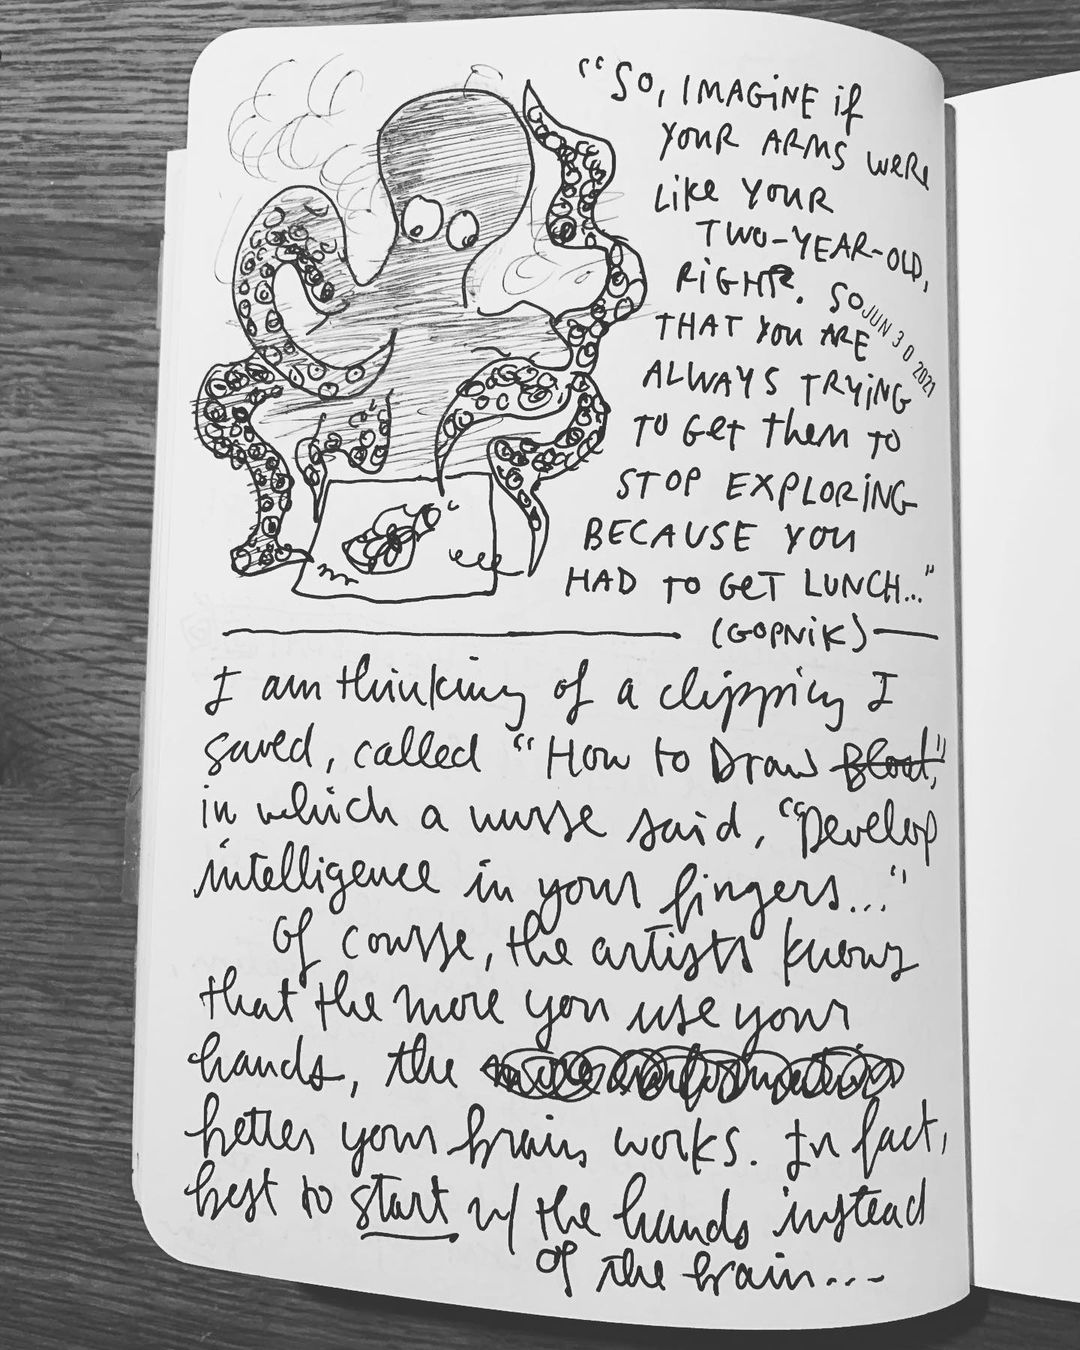 "SO, IMAGINE if
YOUR ARMS WERE
LIKE YOUR
TWO-YEAR-OLD,
RIGHT. SO
JUN 30 2021
THAT YOU ARE
ALWAYS TRYING
TO GET THEM TO
STOP EXPLORING
BECAUSE YOU
HAD TO GET LUNCH..."
(GOPNIK)
I am thinking of a clipping I
saved, called "How to Draw Blood,"
in which a nurse said, "Develop
intelligence in your fingers..."
Of course, the artists knows
that the more you use your
hands, the
better your brain works. In fact,
best to start w/ the hands instead
of the brain...